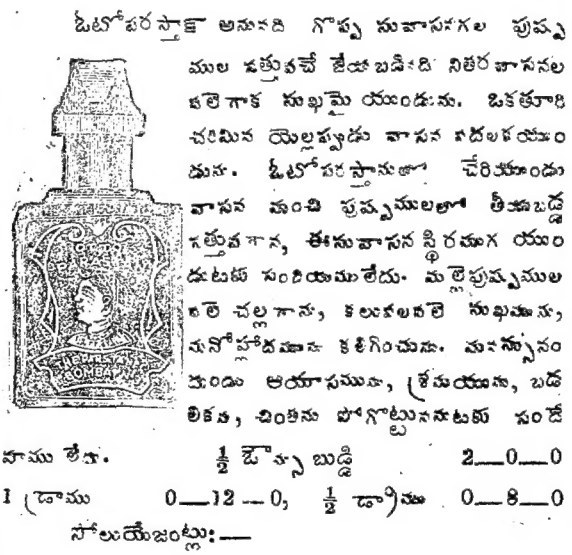 ఓటోపరస్తాక్ అనునది గొప్ప సువాసనగల పుష్ప
ముల సత్తువచే జేయబడినది నితరవాసనల
వలెగాక సుఖమై యుండును. ఒకతూరి
చరిమిన యెల్లప్పుడు వాసన వదలకయుం
డును. ఓటోపరస్తానులో చేరియుండు
వాసన మంచి పుష్పములలో తీయబడ్డ
సత్తువగాన, ఈసువాసన స్థిరముగ యుం
డుటకు సందియములేదు. మల్లెపుష్పముల
వలె చల్లగాను, కలువలవలె సుఖమును,
మనోల్లాదమును కలిగించును. మనస్సునం
దుండు ఆయాసమును, శ్రమయును, బడ
లికను, చింతను పోగొట్టుననుటకు సందే
హము లేదు. ½ ఔన్సు బుడ్డి 2—0—0
1 డ్రాము 0—12—0, ½ డ్రాము 0—8—0
సోలుయేజంట్లు:—